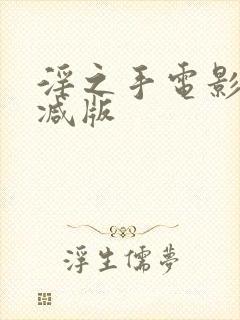 淫之手電影
减版
浮生儒夢